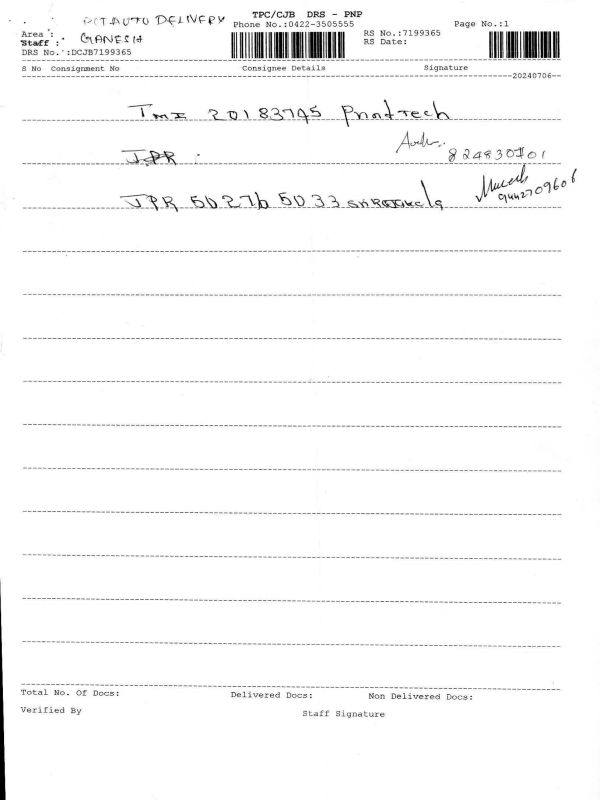 TPC/CJB DRS - PNP
PIT AUTO DELIVERY Phone No.:0422-3505555 Page No.:1
Area : RS No.:7199365
Staff : GANESH RS Date:
DRS No. :DCJB7199365
S No Consignment No Consignee Details Signature
20240706
TMI 20183745 Printtech
JPR
JPR 50276 5033
9442709606
Total No. Of Docs: Delivered Docs: Non Delivered Docs:
Verified By Staff Signature